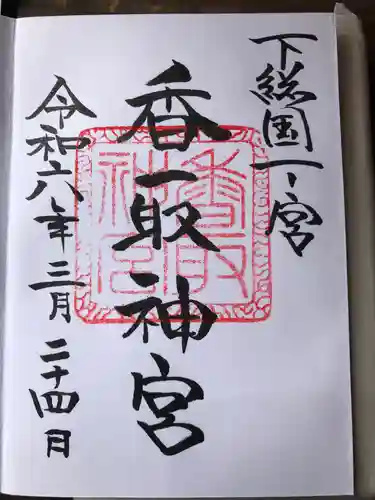 下総国一之宮
香取神宮
香取神宮
令和六年三月二十四日